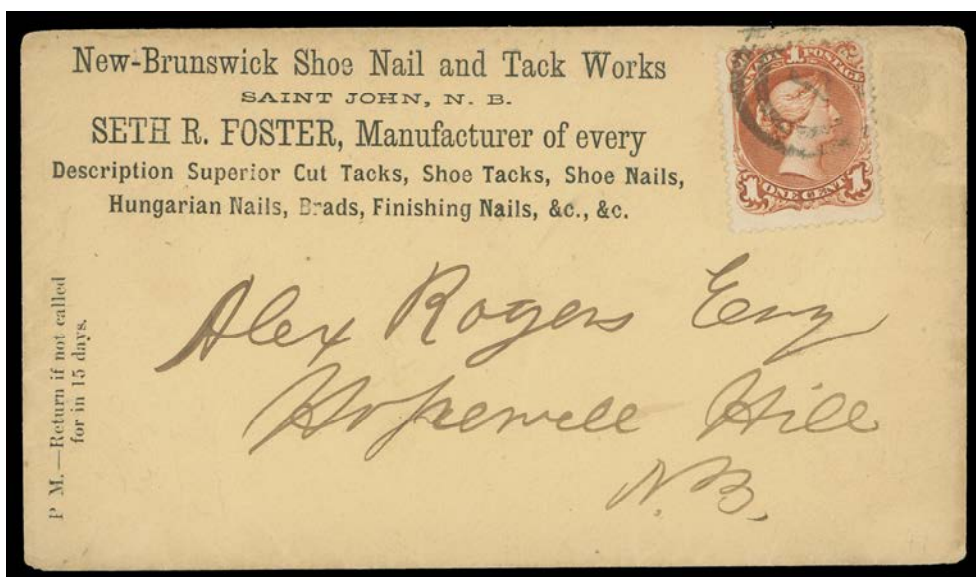 New-Brunswick Shoe Nail and Tack Works
SAINT JOHN, N. B.
SETH R. FOSTER, Manufacturer of every
Description Superior Cut Tacks, Shoe Tacks, Shoe Nails,
Hungarian Nails, Brads, Finishing Nails, &c., &c.
CANADA 1 POSTAGE
1 ONE CENT 1
P M.—Return if not called
for in 15 days.
Alex Rogers Esq
Hopewell Hill
N.B.